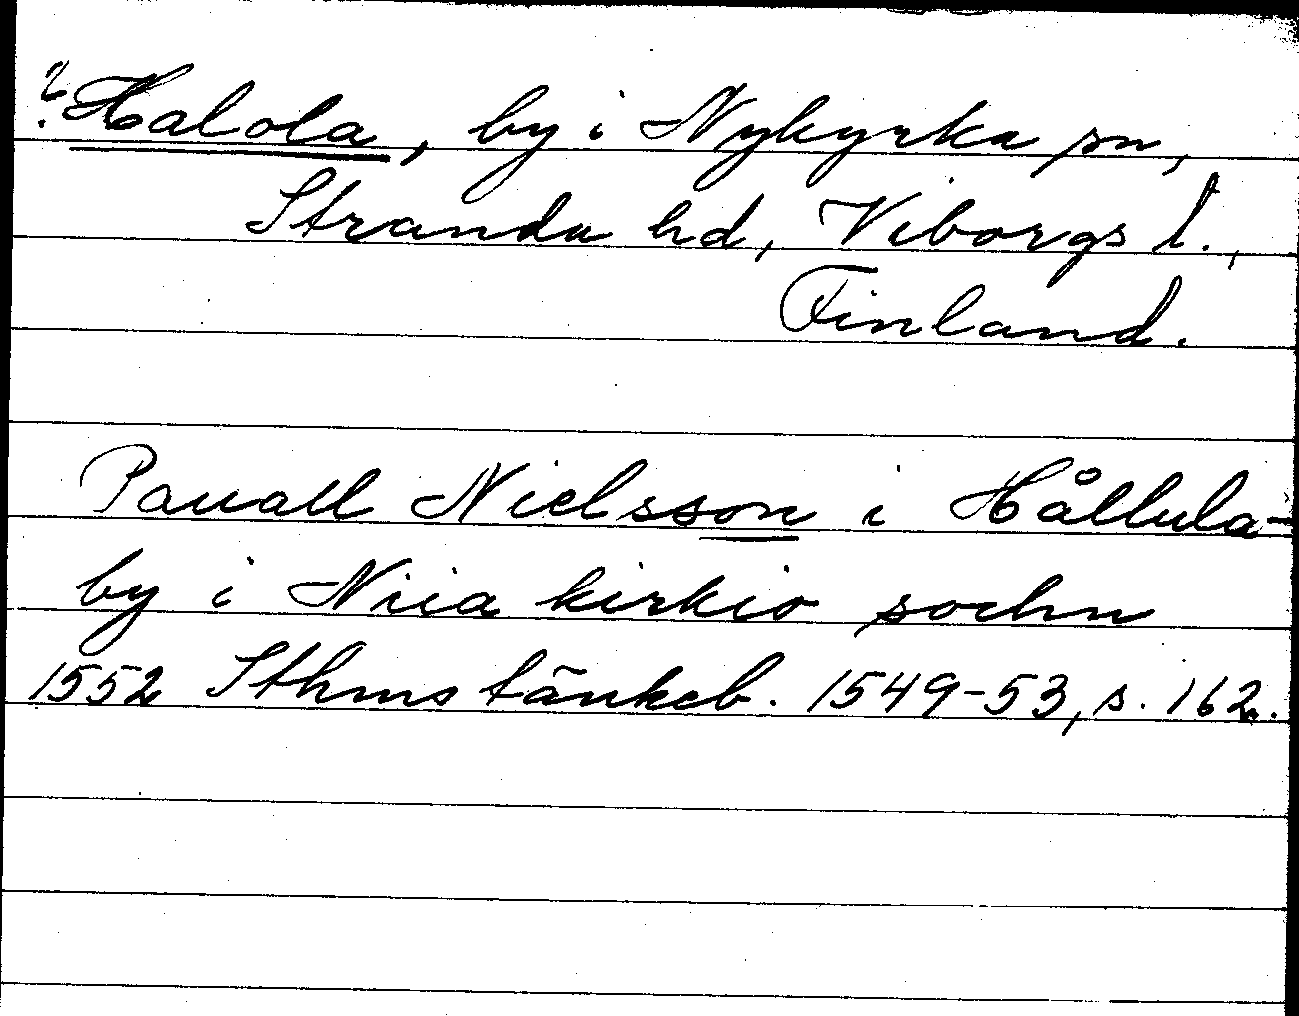 ? Halola, by i Nykyrka sn,
Stranda hd, Viborgs l.,
Finland.
Pauall Nielsson i Hållula-
by i Niia kirkio sochn
1552 Sthms tänkeb. 1549-53, s. 162.